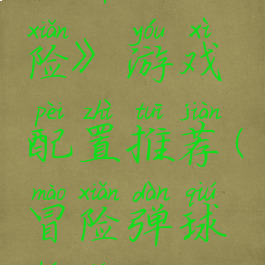 xiǎn yóu xì
险》游戏
pèi zhì tuī jiàn
配置推荐(
mào xiǎn dàn qiú
冒险弹球